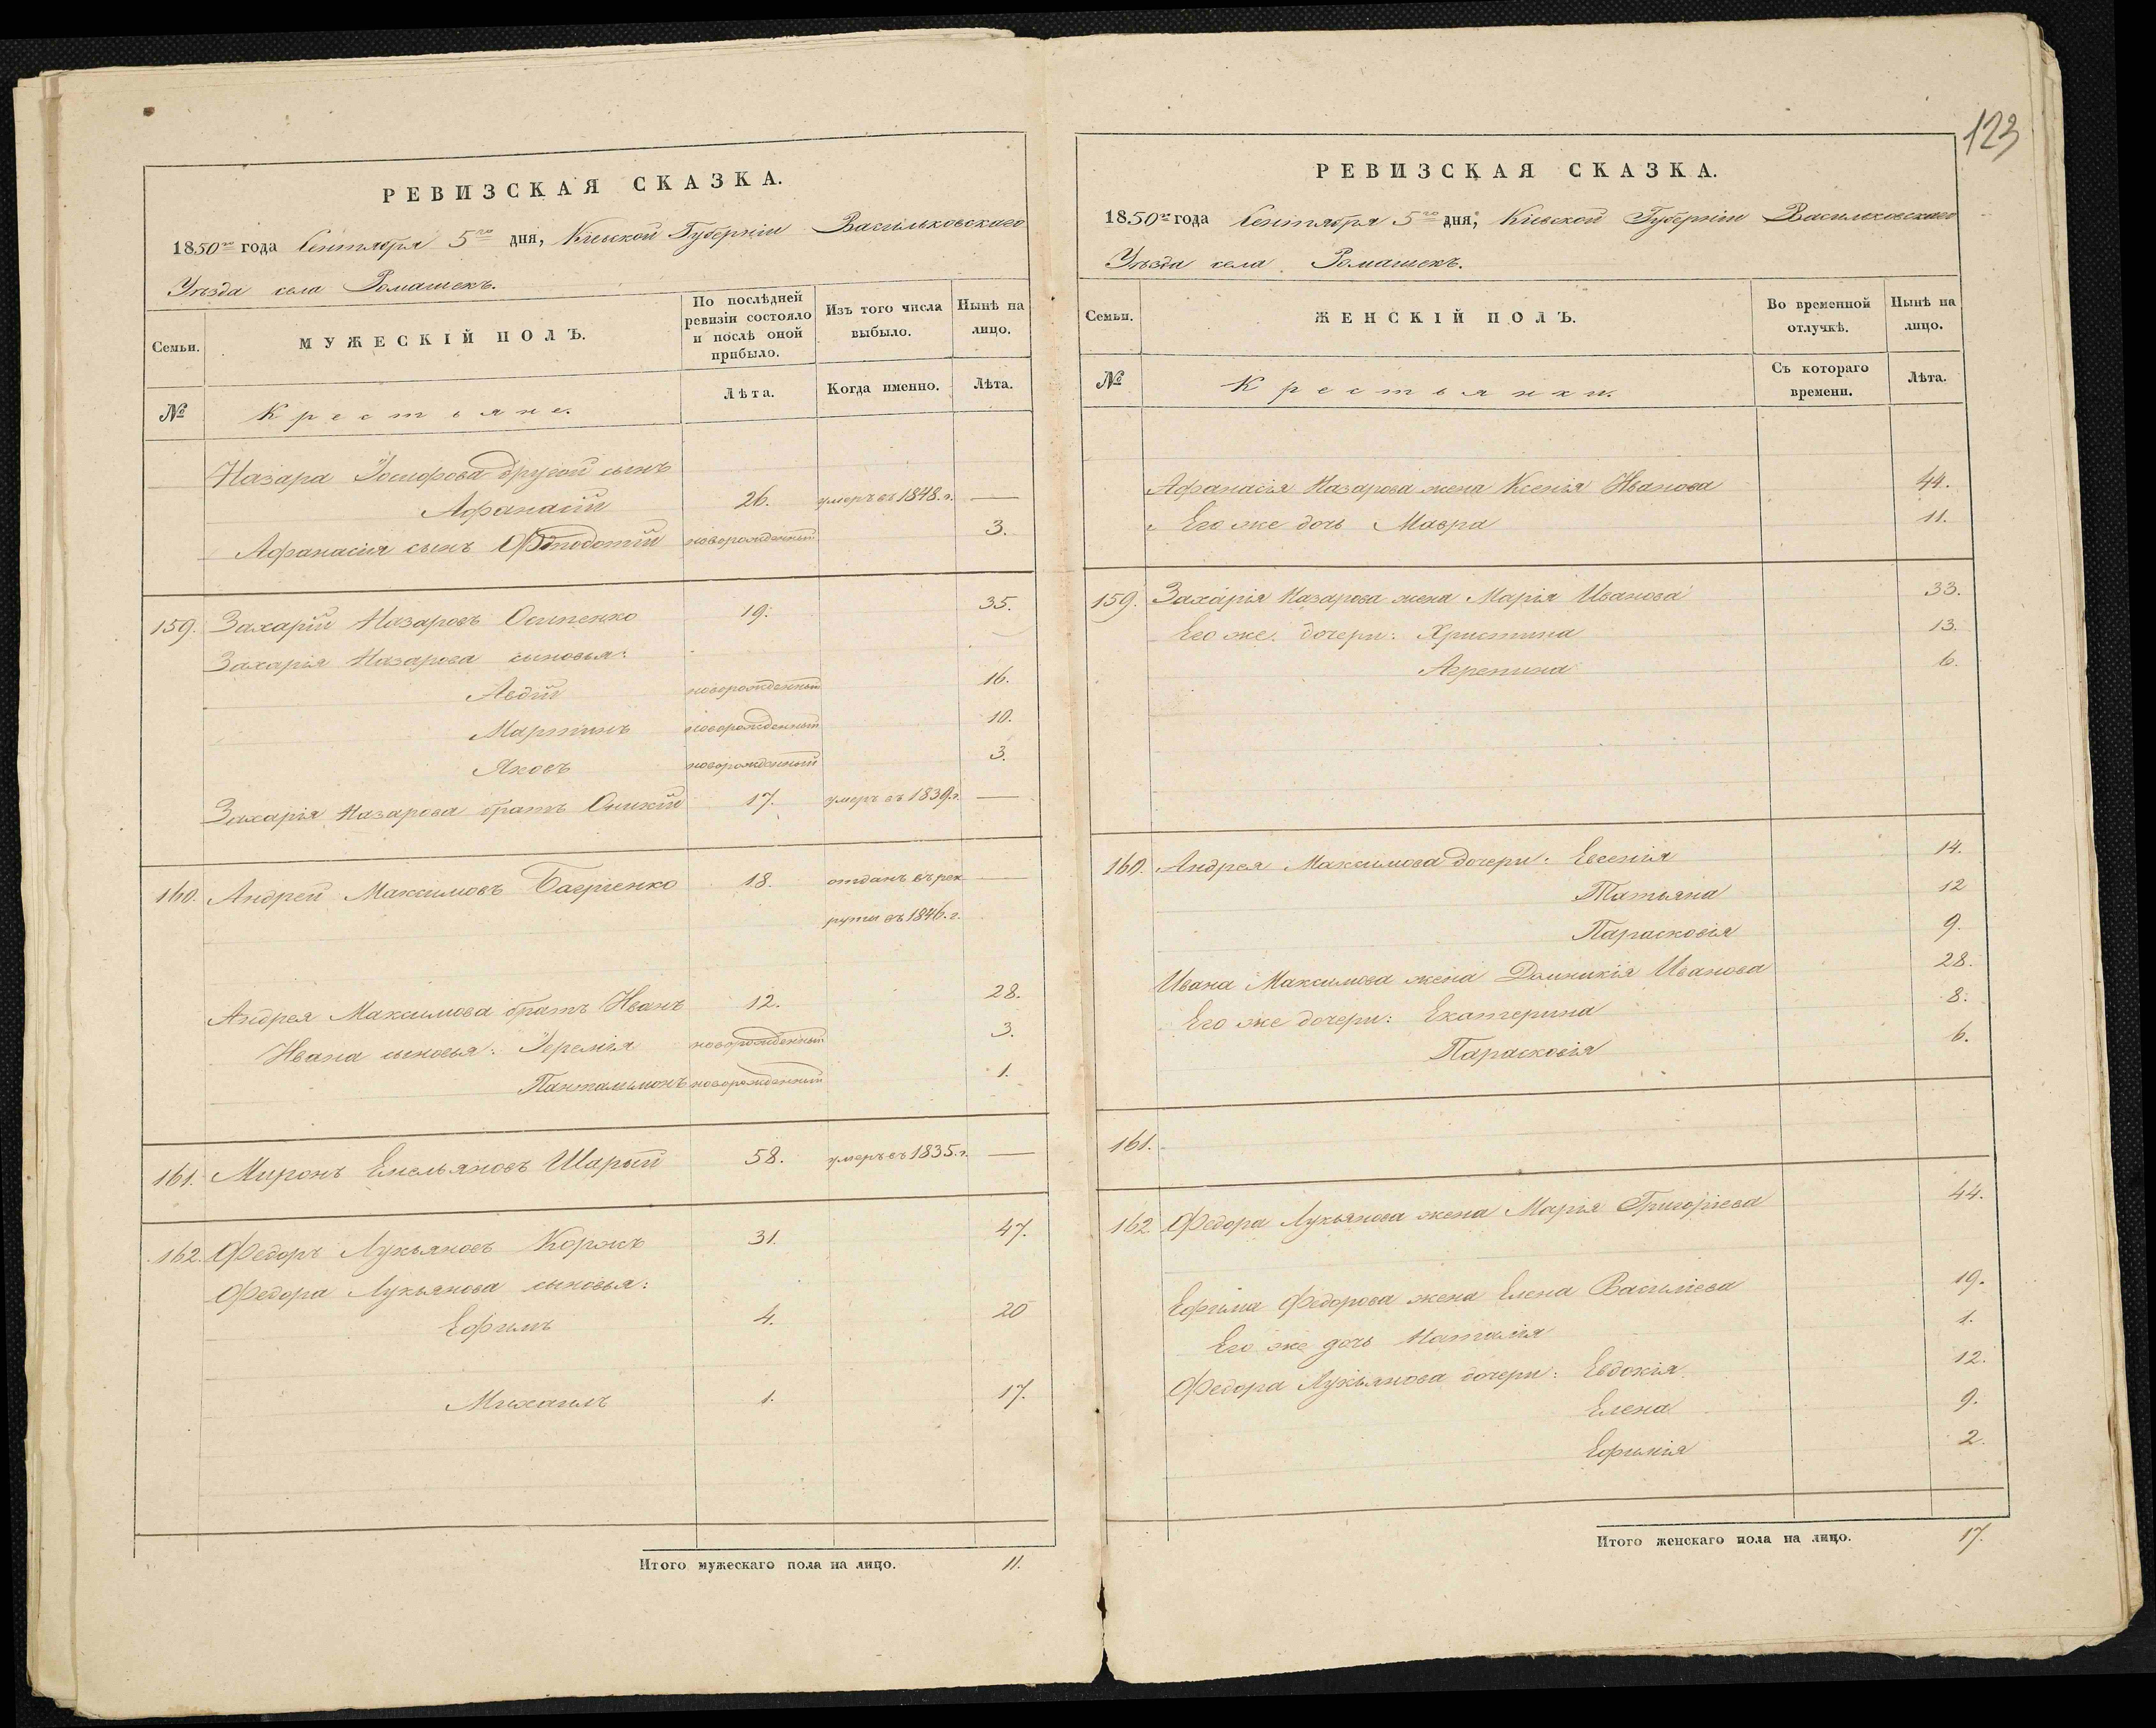 РЕВИЗСКАЯ СКАЗКА.
1850го года Сентября 5го дня, Кіевской Губерніи Васильковскаго
Уѣзда села Ромашекъ.
Семьи.
МУЖЕСКІЙ ПОЛЪ.
По послѣдней ревизіи состояло и послѣ оной прибыло.
Изъ того числа выбыло.
Нынѣ на лицо.
№
Крестьяне.
Лѣта.
Когда именно.
Лѣта.
Назара Іосифова другой сынъ
Афанасій 26. умеръ въ 1848. г. —
Афанасія сынъ Фтодотій новорожденный 3.
159. Захарій Назаровъ Осипенко 19. 35.
Захарія Назарова сыновья:
Авдій новорожденный 16.
Мартинъ новорожденный 10.
Яковъ новорожденный 3.
Захарія Назарова братъ Оникій 17. умеръ въ 1839. г. —
160. Андрей Максимовъ Багріенко 18. отданъ въ рек —
руты въ 1846. г.
Андрея Максимова братъ Иванъ 12. 28.
Ивана сыновья: Іеремія новорожденный 3.
Панталымонъ новорожденный 1.
161. Миронъ Емельяновъ Шарый 58. умеръ въ 1835. г. —
162. Федоръ Лукьяновъ Коржъ 31. 47.
Федора Лукьянова сыновья:
Ефимъ 4. 20
Михаилъ 1. 17.
Итого мужескаго пола на лицо. 11.
123
РЕВИЗСКАЯ СКАЗКА.
1850го года Сентября 5го дня, Кіевской Губерніи Васильковскаго
Уѣзда села Ромашекъ.
Семьи.
ЖЕНСКІЙ ПОЛЪ.
Во временной отлучкѣ.
Нынѣ на лицо.
№
Крестьянки.
Съ котораго времени.
Лѣта.
Афанасія Назарова жена Ксенія Иванова 44.
Его же дочь Мавра 11.
159. Захарія Назарова жена Марія Иванова 33.
Его же дочери: Христина 13.
Агрепина 6.
160. Андрея Максимова дочери: Евгенія 14.
Татьяна 12
Парасковія 9.
Ивана Максимова жена Домникія Иванова 28.
Его же дочери: Екатерина 8.
Парасковія 6.
161.
162. Федора Лукьянова жена Марія Григоріева 44.
Ефима Федорова жена Елена Василіева 19.
Его же дочь Наталія 1.
Федора Лукьянова дочери: Евдокія 12.
Елена 9.
Ефимія 2.
Итого женскаго пола на лицо. 17.